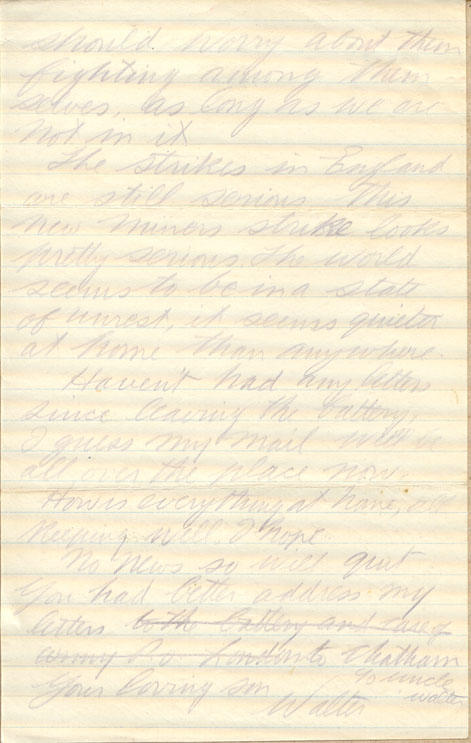 should worry about them
fighting among them
selves, as long as we are
not in it
The strikes in England
are still serious This
new miners strike looks
pretty serious. The world
seems to be in a state
of unrest, it seems quieter
at home than anywhere.
Haven't had any letters
since leaving the battery,
I guess my mail will be
all over the place now.
How is everything at home, all
keeping well I hope
No news so will quit
You had better address my
letters to the battery and care of
army P.O. London to Chatham
c/o uncle
Your loving son walter
Walter